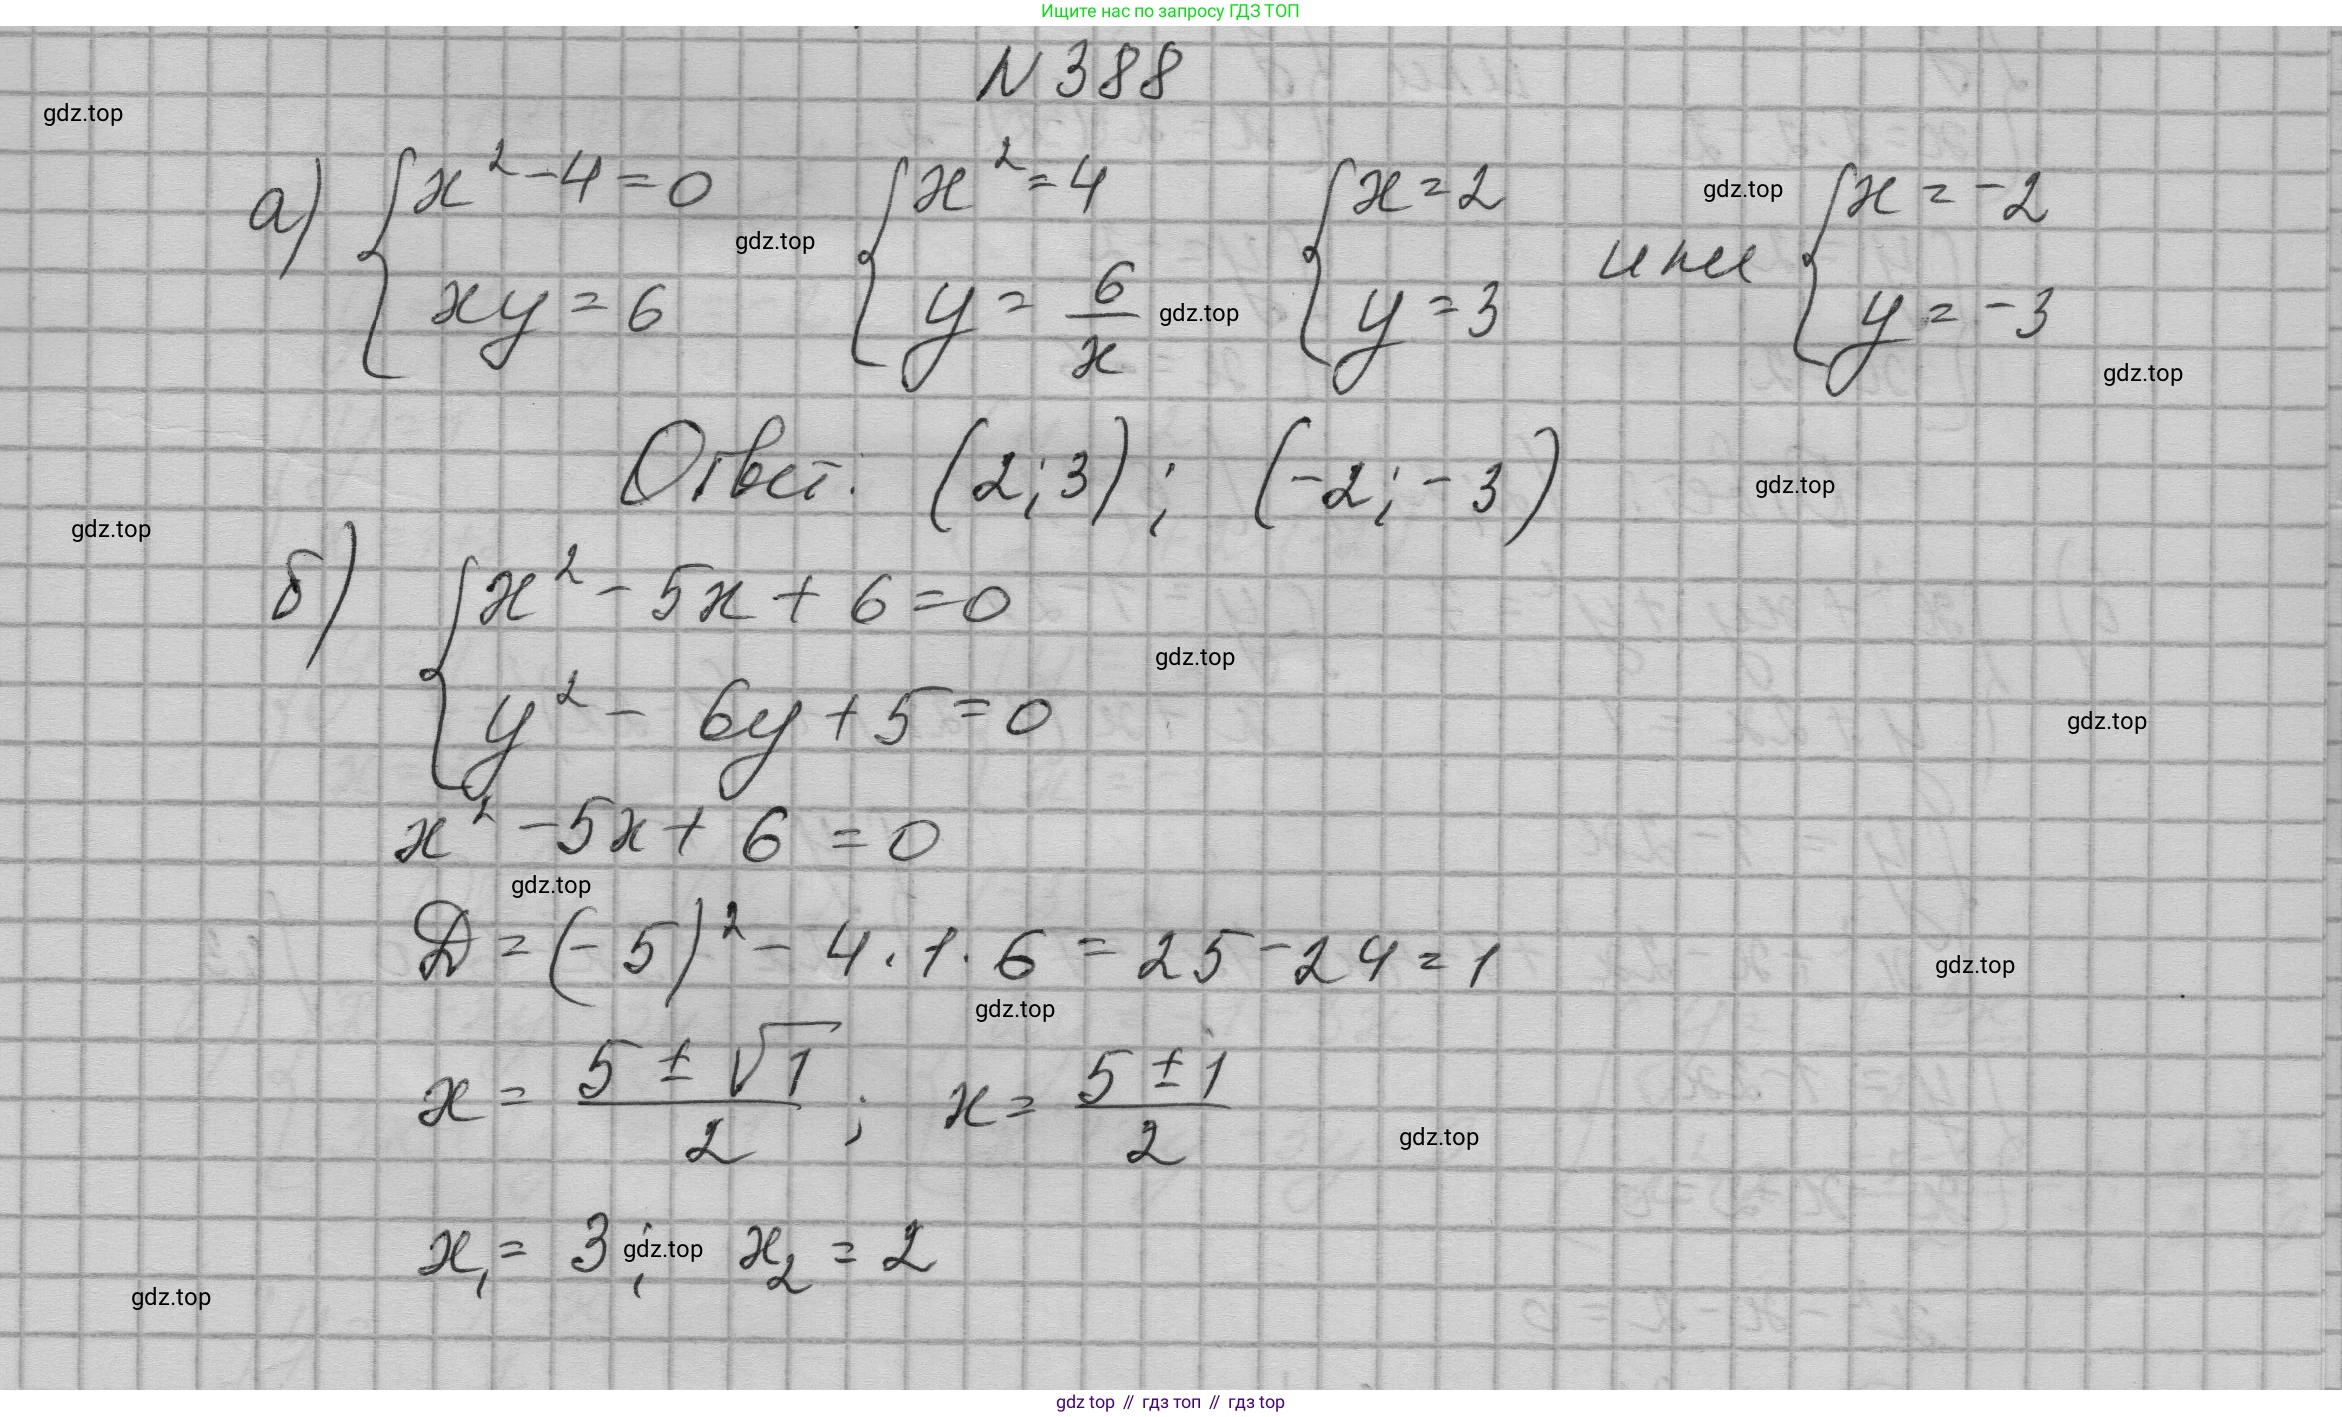 Ищите нас по запросу ГДЗ ТОП
N 388
gdz.top
а) { x² - 4 = 0 { x² = 4 { x = 2 или { x = -2
xy = 6 y = 6/x y = 3 y = -3
gdz.top gdz.top gdz.top gdz.top
Ответ: (2; 3); (-2; -3)
gdz.top gdz.top
б) { x² - 5x + 6 = 0
y² - 6y + 5 = 0
gdz.top gdz.top
x² - 5x + 6 = 0
gdz.top
D = (-5)² - 4 · 1 · 6 = 25 - 24 = 1
gdz.top gdz.top
x = (5 ± √1)/2 ; x = (5 ± 1)/2
gdz.top
x₁ = 3; x₂ = 2
gdz.top
gdz.top
gdz top // гдз топ // гдз top